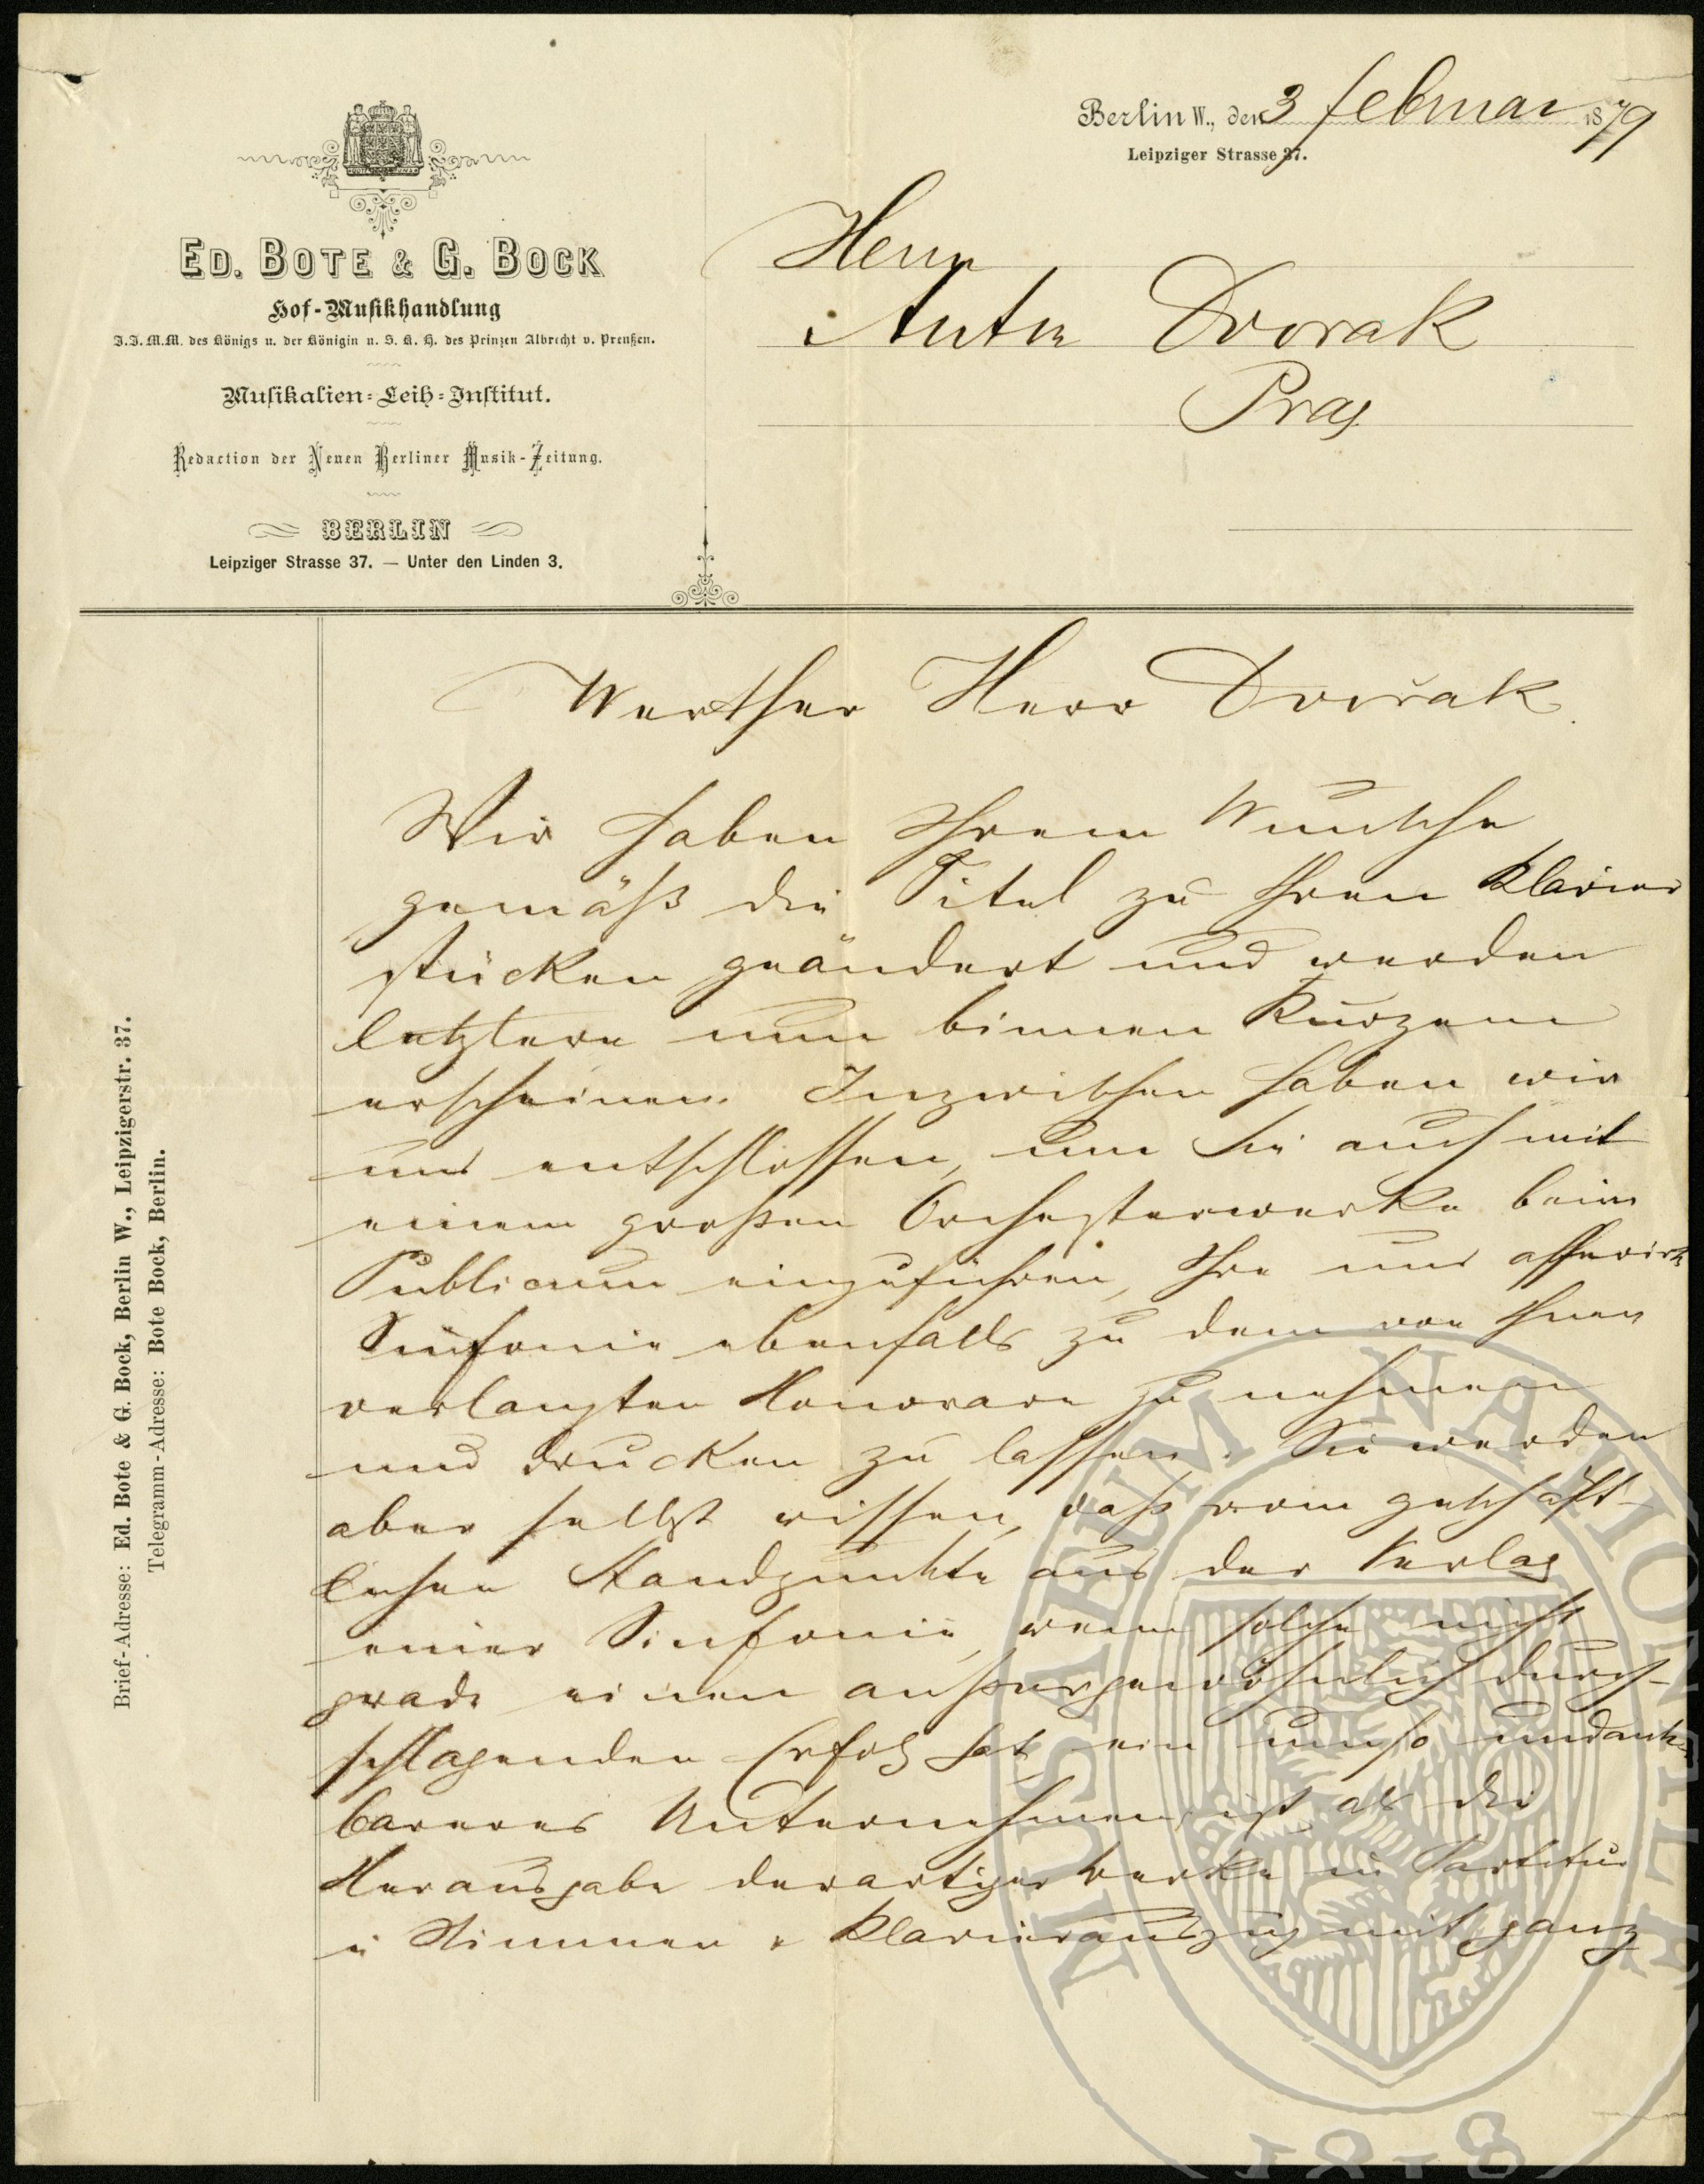 Berlin W., den 3 Februar 1879
Leipziger Strasse 37.
ED. BOTE & G. BOCK
Hof-Musikhandlung
J.J.M.M. des Königs u. der Königin u. S. K. H. des Prinzen Albrecht v. Preußen.
Musikalien-Leih-Institut.
Redaction der Neuen Berliner Musik-Zeitung.
BERLIN
Leipziger Strasse 37. — Unter den Linden 3.
Herrn
Anton Dvorak
Prag
Brief-Adresse: Ed. Bote & G. Bock, Berlin W., Leipzigerstr. 37.
Telegramm-Adresse: Bote Bock, Berlin.
Werther Herr Dvořak
Wir haben Ihrem Wunsche
gemäß die Titel zu Ihren Klavier
stücken geändert und werden
letztere nun binnen Kurzem
erscheinen. Inzwischen haben wir
uns entschlossen, um Sie auch mit
einem großen Orchesterwerke beim
Publicum einzuführen, Ihre uns offerirte
Sinfonie ebenfalls zu dem von Ihnen
verlangten Honorare zu nehmen
und drucken zu lassen. Sie werden
aber selbst wissen, daß vom geschäft-
lichen Standpunkte aus der Verlag
einer Sinfonie, wenn solche nicht
grade einen außergewöhnlich durch-
schlagenden Erfolg hat, ein umso undank
bareres Unternehmen ist, als die
Herausgabe derartiger Werke in Partitur
in Stimmen & Klavierauszug mit ganz
MUSAEUM NATIONALE
1818